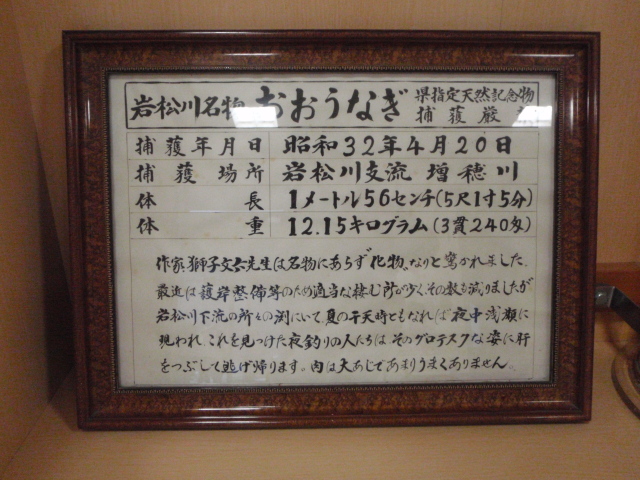 岩松川名物 おおうなぎ 県指定天然記念物
捕獲厳
捕獲年月日 昭和32年4月20日
捕獲場所 岩松川支流 増穂川
体長 1メートル56センチ(5尺1寸5分)
体重 12.15キログラム(3貫240匁)
作家獅子文六先生は名物にあらず〝化物〟なりと驚かれました。
最近は護岸整備等のため適当な棲む所が少く、その数も減りましたが
岩松川下流の所々の渕にいて、夏の干天時ともなれば夜中浅瀬に
現われ、これを見つけた夜釣りの人たちは、そのグロテスクな姿に肝
をつぶして逃げ帰ります。肉は大あじであまりうまくありません。